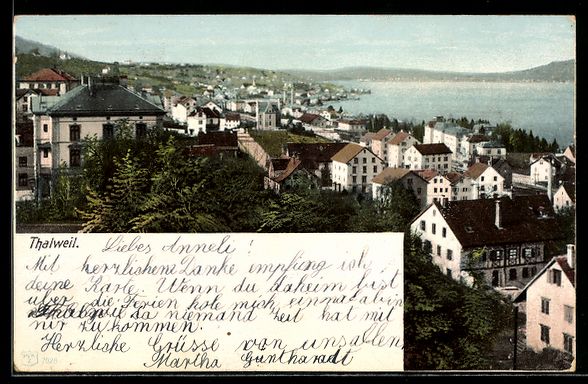 Thalweil. Liebes Anneli!
Mit herzlichem Danke empfing ich
deine Karte. Wenn du daheim bist
über die Ferien hole mich einmal
weil da niemand Zeit hat mit
mir zu kommen.
Herzliche Grüsse von uns allen
Martha Guntharadt
7028